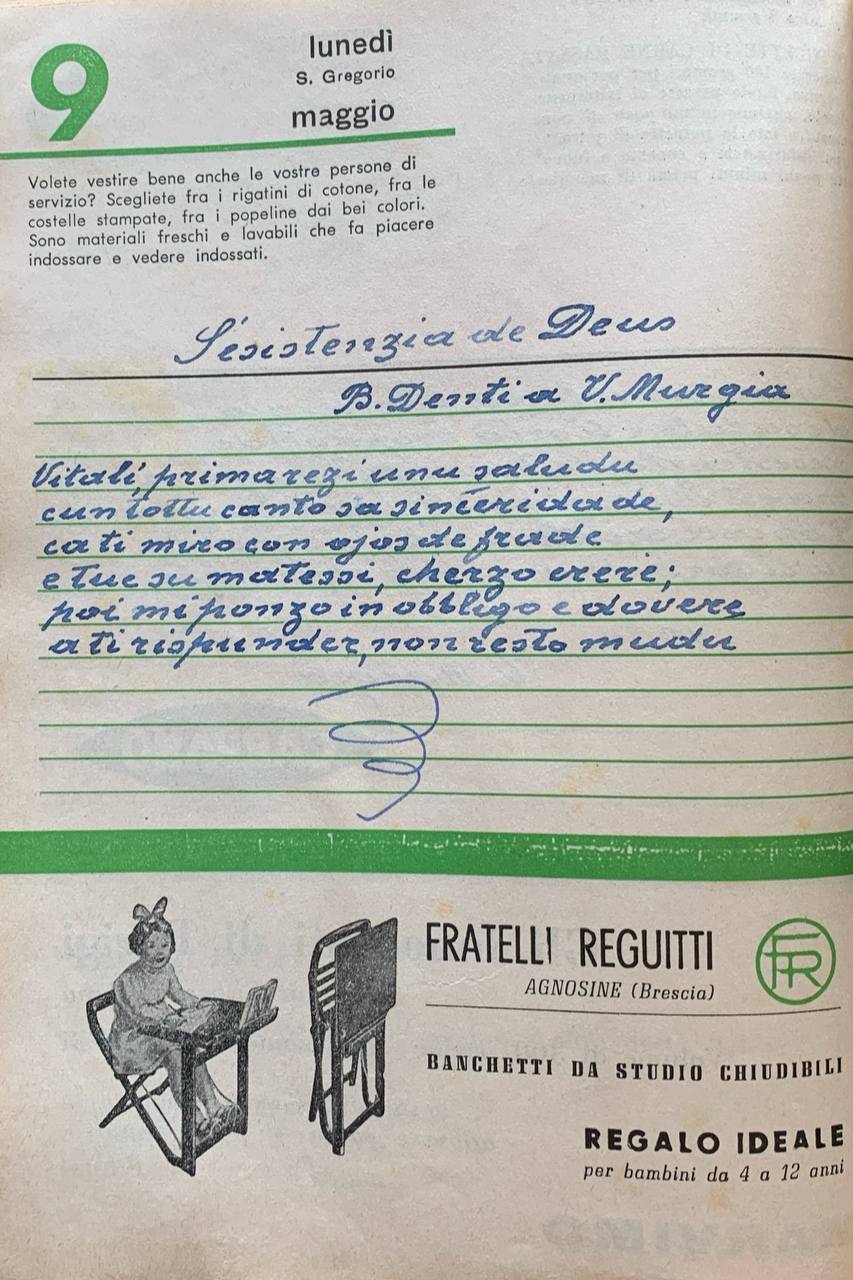 9
lunedì
S. Gregorio
maggio
Volete vestire bene anche le vostre persone di
servizio? Scegliete fra i rigatini di cotone, fra le
costelle stampate, fra i popeline dai bei colori.
Sono materiali freschi e lavabili che fa piacere
indossare e vedere indossati.
S'esistenzia de Deus
B. Denti a V. Murgia
Vitali, prima rezi unu saludu
cun tottu canto sa sinceridade,
ca ti miro con ojos de frade
e tue su matessi, cherzo crere;
poi mi ponzo in obbligo e dovere
a ti rispunder, non resto mudu
FRATELLI REGUITTI
AGNOSINE (Brescia)
FR
BANCHETTI DA STUDIO CHIUDIBILI
REGALO IDEALE
per bambini da 4 a 12 anni